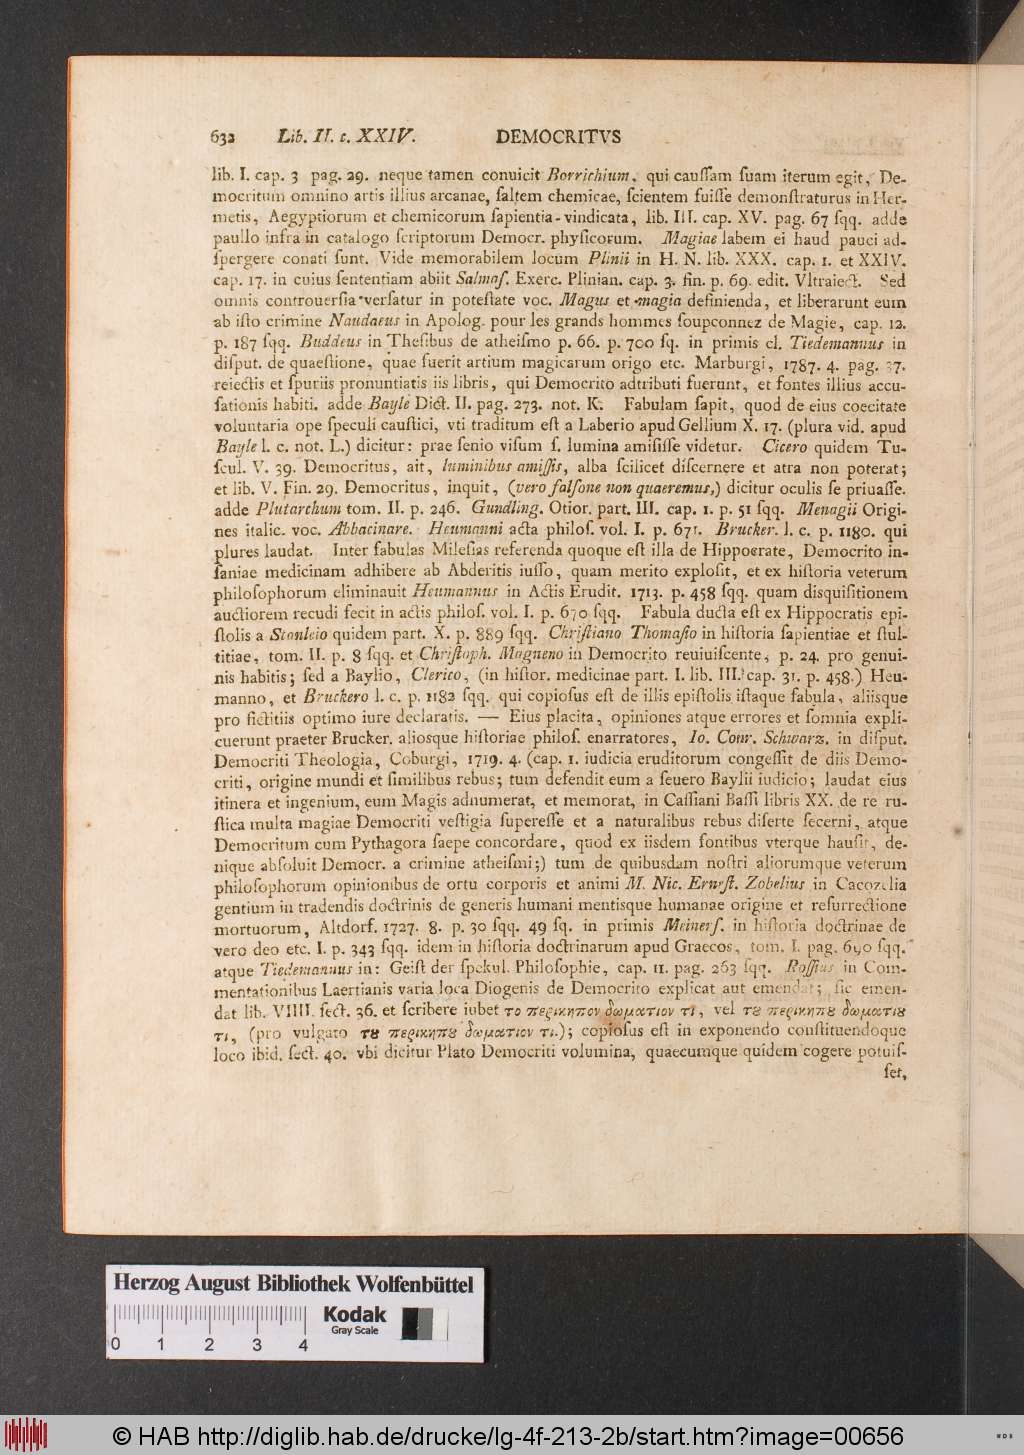 632 Lib. II. c. XXIV. DEMOCRITVS
lib. I. cap. 3 pag. 29. neque tamen conuicit Borrichium, qui cauſſam ſuam iterum egit, De-
mocritum omnino artis illius arcanae, ſaltem chemicae, ſcientem fuiſſe demonſtraturus in Her-
metis, Aegyptiorum et chemicorum ſapientia-vindicata, lib. III. cap. XV. pag. 67 ſqq. adde
paullo infra in catalogo ſcriptorum Democr. phyſicorum. Magiae labem ei haud pauci ad-
ſpergere conati ſunt. Vide memorabilem locum Plinii in H. N. lib. XXX. cap. 1. et XXIV.
cap. 17. in cuius ſententiam abiit Salmaſ. Exerc. Plinian. cap. 3. fin. p. 69. edit. Vltraiect. Sed
omnis controuerſia verſatur in poteſtate voc. Magus et magia definienda, et liberarunt eum
ab iſto crimine Naudaeus in Apolog. pour les grands hommes ſoupconnez de Magie, cap. 12.
p. 187 ſqq. Buddeus in Theſibus de atheiſmo p. 66. p. 700 ſq. in primis cl. Tiedemannus in
diſput. de quaeſtione, quae fuerit artium magicarum origo etc. Marburgi, 1787. 4. pag. 37.
reiectis et ſpuriis pronuntiatis iis libris, qui Democrito adtributi fuerunt, et fontes illius accu-
ſationis habiti. adde Bayle Dict. II. pag. 273. not. K. Fabulam ſapit, quod de eius coecitate
voluntaria ope ſpeculi cauſtici, vti traditum eſt a Laberio apud Gellium X. 17. (plura vid. apud
Bayle l. c. not. L.) dicitur: prae ſenio viſum ſ. lumina amiſiſſe videtur. Cicero quidem Tu-
ſcul. V. 39. Democritus, ait, luminibus amiſſis, alba ſcilicet diſcernere et atra non poterat;
et lib. V. Fin. 29. Democritus, inquit, (vero falſone non quaeremus,) dicitur oculis ſe priuaſſe.
adde Plutarchum tom. II. p. 246. Gundling. Otior. part. III. cap. 1. p. 51 ſqq. Menagii Origi-
nes italic. voc. Abbacinare. Heumanni acta philoſ. vol. I. p. 671. Brucker. l. c. p. 1180. qui
plures laudat. Inter fabulas Mileſias referenda quoque eſt illa de Hippocrate, Democrito in-
ſaniae medicinam adhibere ab Abderitis iuſſo, quam merito exploſit, et ex hiſtoria veterum
philoſophorum eliminauit Heumannus in Actis Erudit. 1713. p. 458 ſqq. quam disquiſitionem
auctiorem recudi fecit in actis philoſ. vol. I. p. 670 ſqq. Fabula ducta eſt ex Hippocratis epi-
ſtolis a Stanleio quidem part. X. p. 889 ſqq. Chriſtiano Thomaſio in hiſtoria ſapientiae et ſtul-
titiae, tom. II. p. 8 ſqq. et Chriſtoph. Magneno in Democrito reuiuiſcente, p. 24. pro genui-
nis habitis; ſed a Baylio, Clerico, (in hiſtor. medicinae part. I. lib. III. cap. 31. p. 458.) Heu-
manno, et Bruckero l. c. p. 1182 ſqq. qui copioſus eſt de illis epiſtolis iſtaque fabula, aliisque
pro fictitiis optimo iure declaratis. — Eius placita, opiniones atque errores et ſomnia expli-
cuerunt praeter Brucker. aliosque hiſtoriae philoſ. enarratores, Io. Conr. Schwarz. in diſput.
Democriti Theologia, Coburgi, 1719. 4. (cap. 1. iudicia eruditorum congeſſit de diis Demo-
criti, origine mundi et ſimilibus rebus; tum defendit eum a ſeuero Baylii iudicio; laudat eius
itinera et ingenium, eum Magis adnumerat, et memorat, in Caſſiani Baſſi libris XX. de re ru-
ſtica multa magiae Democriti veſtigia ſupereſſe et a naturalibus rebus diſerte ſecerni, atque
Democritum cum Pythagora ſaepe concordare, quod ex iisdem fontibus vterque hauſit, de-
nique abſoluit Democr. a crimine atheiſmi;) tum de quibusdam noſtri aliorumque veterum
philoſophorum opinionibus de ortu corporis et animi M. Nic. Ernſt. Zobelius in Cacozelia
gentium in tradendis doctrinis de generis humani mentisque humanae origine et reſurrectione
mortuorum, Altdorf. 1727. 8. p. 30 ſqq. 49 ſq. in primis Meinerſ. in hiſtoria doctrinae de
vero deo etc. I. p. 343 ſqq. idem in hiſtoria doctrinarum apud Graecos, tom. I. pag. 690 ſqq.
atque Tiedemannus in: Geiſt der ſpekul. Philoſophie, cap. 11. pag. 263 ſqq. Roſſius in Com-
mentationibus Laertianis varia loca Diogenis de Democrito explicat aut emendat; ſic emen-
dat lib. VIIII. ſect. 36. et ſcribere iubet το περικηπον δωματιον τι, vel τȣ περικηπȣ δωματιȣ
τι, (pro vulgato τȣ περικηπȣ δωματιον τι.); copioſus eſt in exponendo conſtituendoque
loco ibid. ſect. 40. vbi dicitur Plato Democriti volumina, quaecumque quidem cogere potuiſ-
ſet,
Herzog August Bibliothek Wolfenbüttel
Kodak
Gray Scale
0 1 2 3 4
© HAB http://diglib.hab.de/drucke/lg-4f-213-2b/start.htm?image=00656